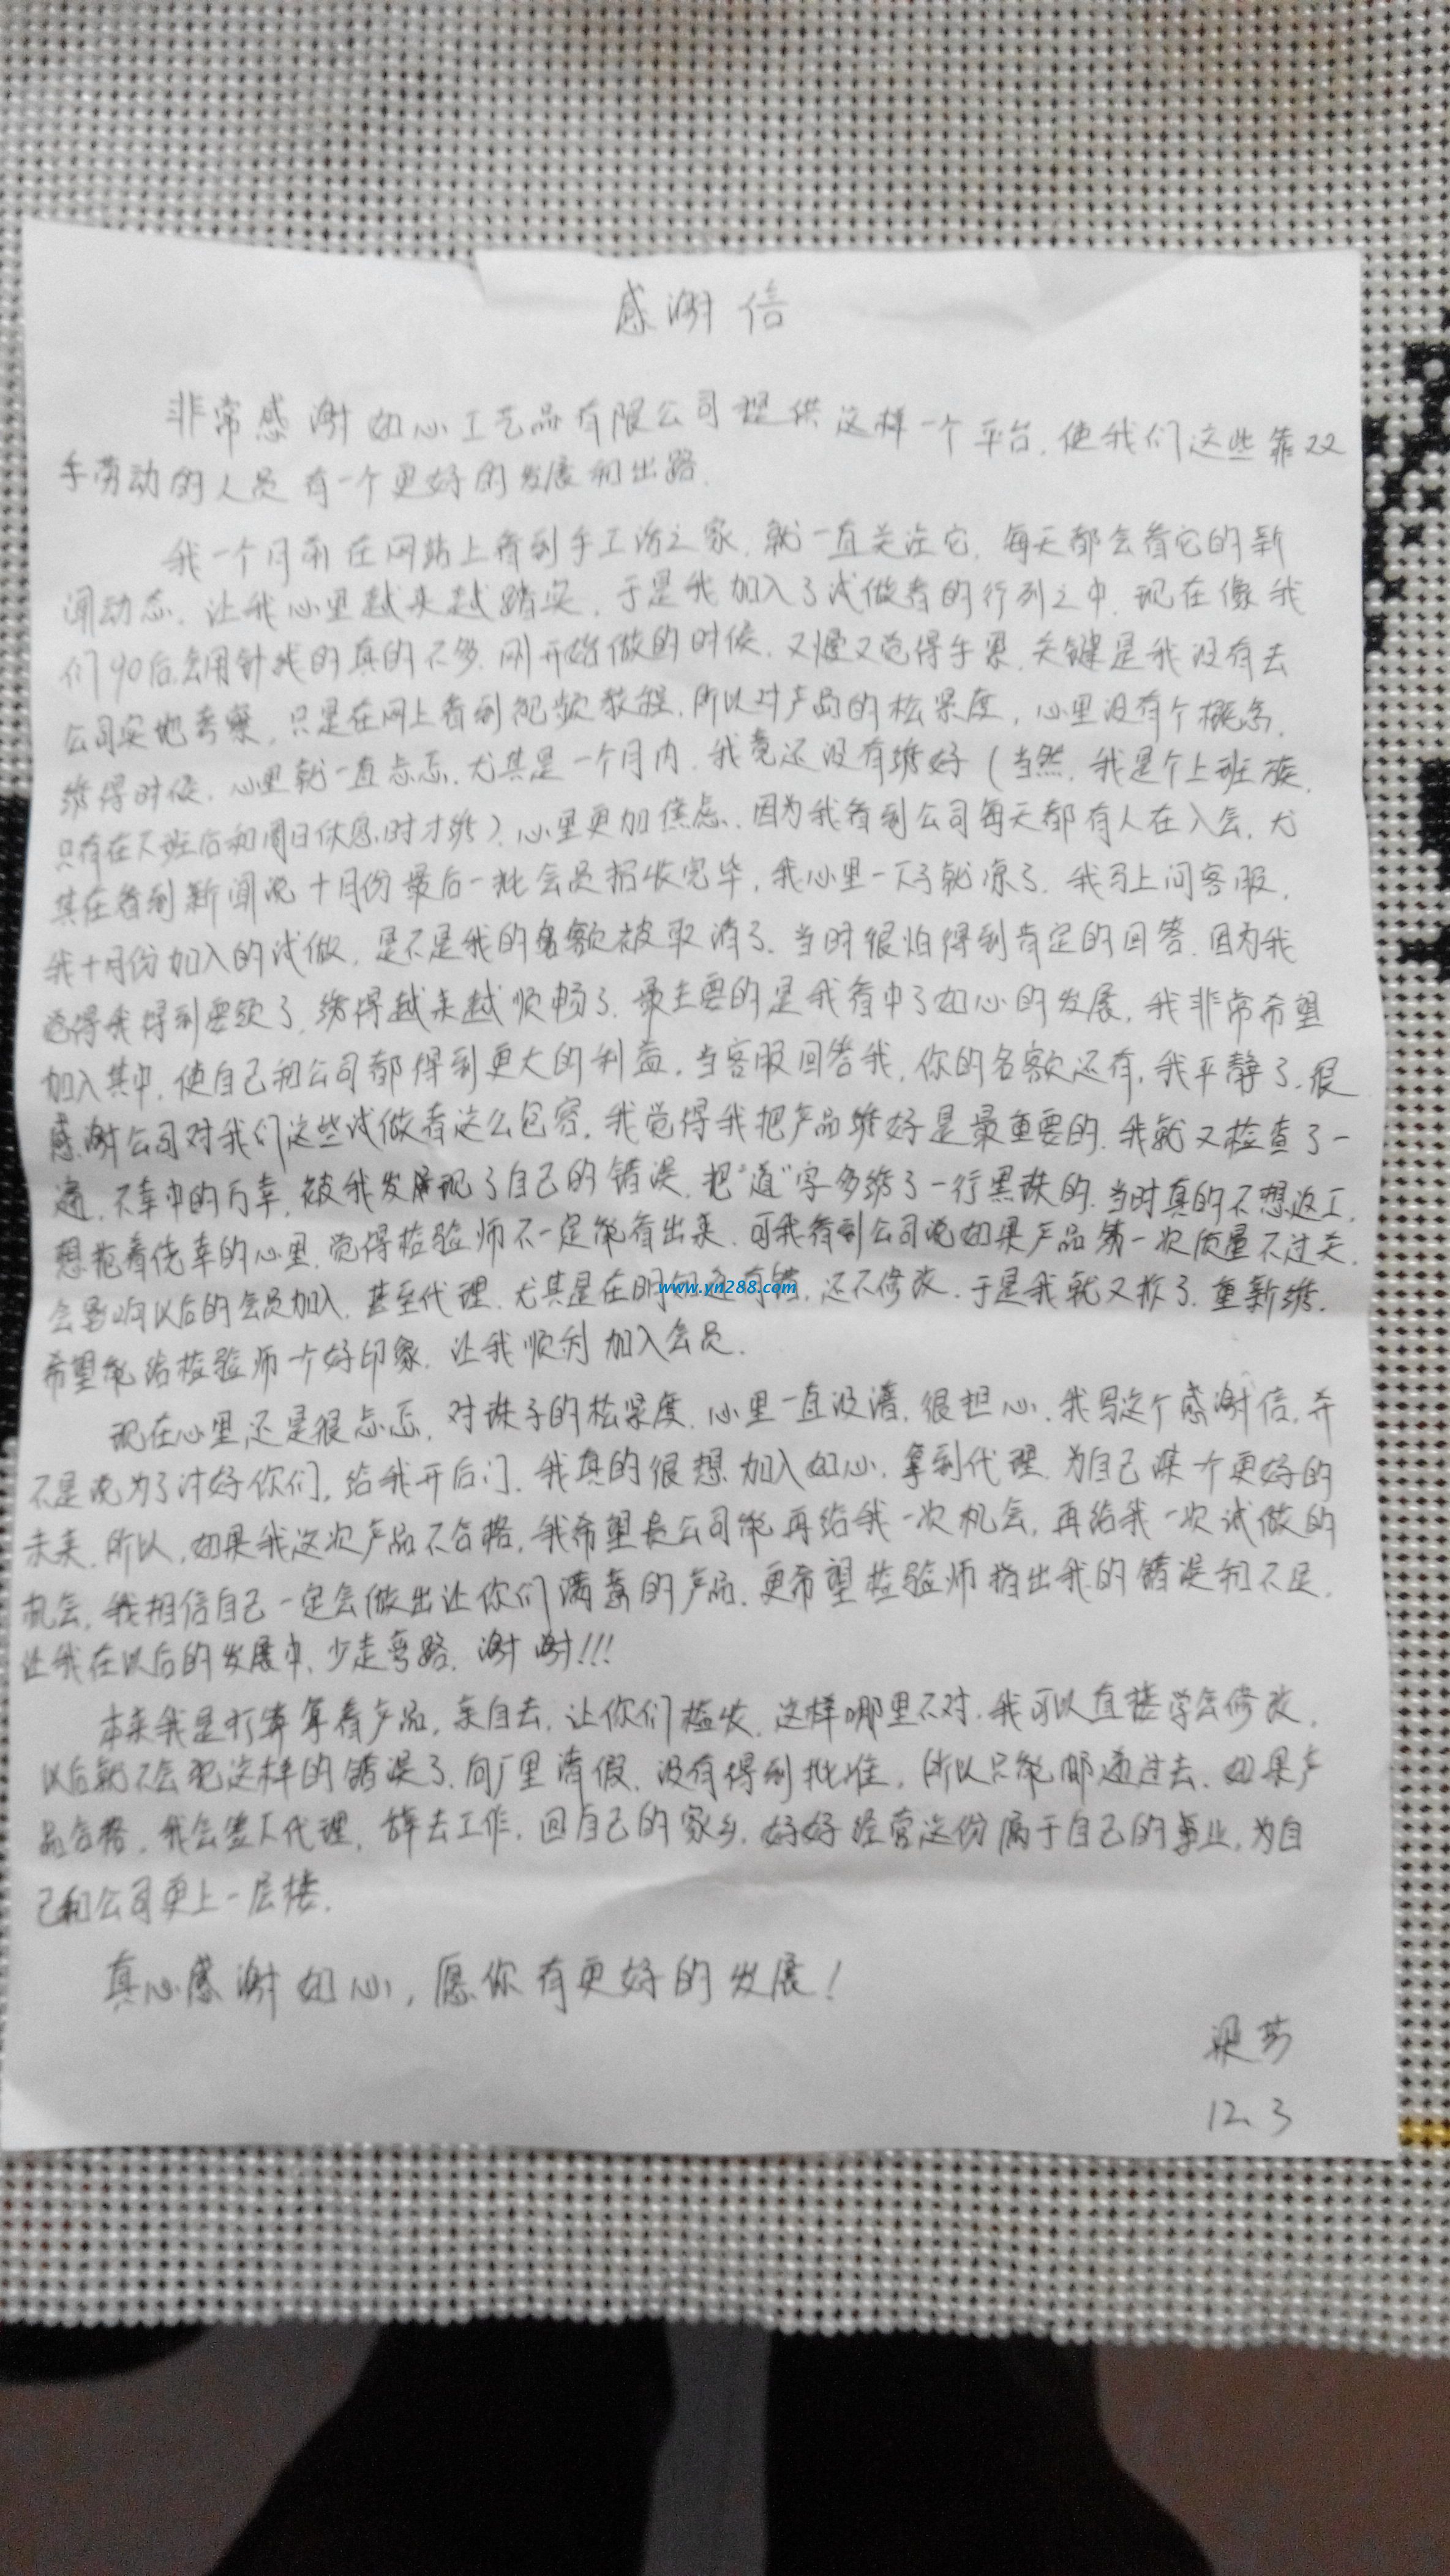 感谢信
非常感谢如心工艺品有限公司提供这样一个平台,使我们这些靠双
手劳动的人员有一个更好的发展和出路.
我一个月前在网站上看到手工活之家,就一直关注它,每天都会看它的新
闻动态,让我心里越来越踏实,于是我加入了试做者的行列之中,现在像我
们90后会用针线的真的不多,刚开始做的时候,又慢又觉得手累,关键是我没有去
公司实地考察,只是在网上看到视频教程,所以对产品的松紧度,心里没有个概念,
绣得时候,心里就一直忐忑,尤其是一个月内,我竟还没有绣好(当然,我是个上班族,
只有在下班后和周日休息时才绣),心里更加焦虑,因为我看到公司每天都有人在入会,尤
其在看到新闻说十月份最后一批会员招收完毕,我心里一下子就凉了,我马上问客服,
我十月份加入的试做,是不是我的名额被取消了,当时很怕得到肯定的回答,因为我
觉得我得到要领了,绣得越来越顺畅了,最主要的是我看中了如心的发展,我非常希望
加入其中,使自己和公司都得到更大的利益,当客服回答我,你的名额还有,我平静了,很
感谢公司对我们这些试做者这么包容,我觉得我把产品绣好是最重要的,我就又检查了一
遍,不幸中的万幸,被我发现了自己的错误,把“道”字多绣了一行黑珠的,当时真的不想返工,
想抱着侥幸的心里,觉得检验师不一定能看出来,可我看到公司说如果产品第一次质量不过关,
会影响以后的会员加入,甚至代理,尤其是在明知还有错,还不修改,于是我就又拆了,重新绣,
希望能给检验师一个好印象,让我顺利加入会员.
现在心里还是很忐忑,对珠子的松紧度,心里一直没谱,很担心,我写这个感谢信,并
不是说为了讨好你们,给我开后门,我真的很想加入如心,拿到代理,为自己谋一个更好的
未来,所以,如果我这次产品不合格,我希望贵公司能再给我一次机会,再给我一次试做的
机会,我相信自己一定会做出让你们满意的产品,更希望检验师指出我的错误和不足,
让我在以后的发展中,少走弯路,谢谢!!!
本来我是打算拿着产品,亲自去,让你们检收,这样哪里不对,我可以直接学会修改,
以后就不会犯这样的错误了,向厂里请假,没有得到批准,所以只能邮递过去,如果产
品合格,我会签下代理,辞去工作,回自己的家乡,好好经营这份属于自己的事业,为自
己和公司更上一层楼.
真心感谢如心,愿你有更好的发展!
梁芬
12.3
www.yn288.com